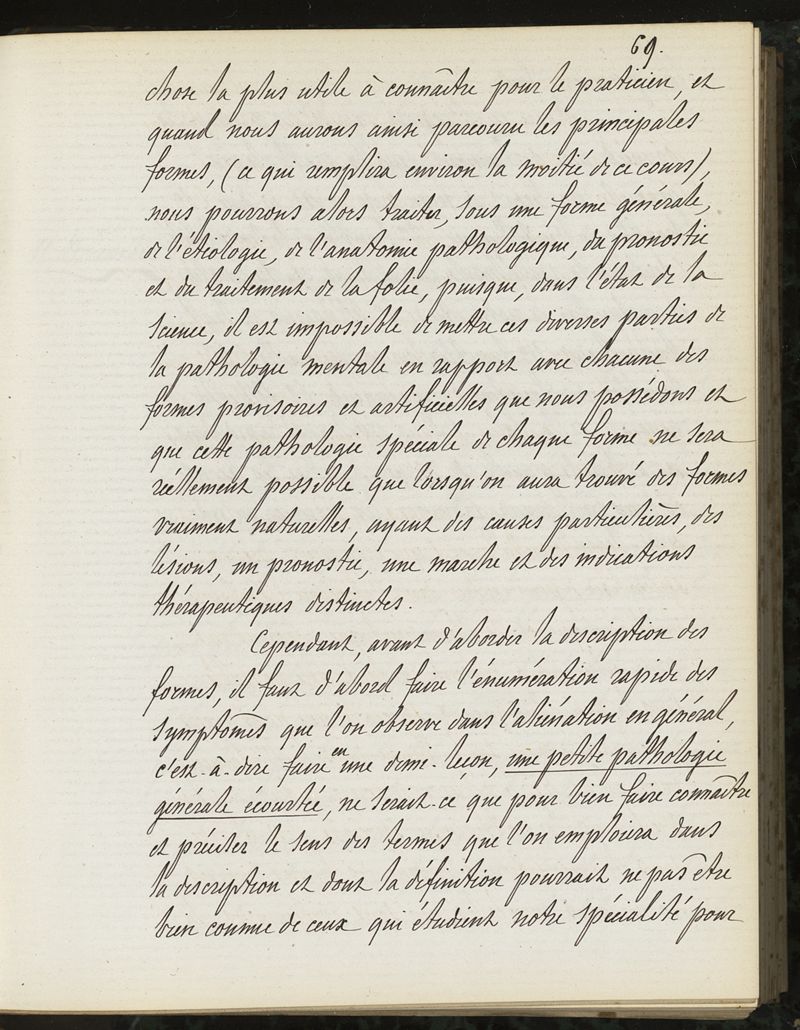 69.
chose la plus utile à connaître pour le praticien, et
quand nous aurons ainsi parcouru les principales
formes, (ce qui remplira environ la moitié de ce cours),
nous pourrons alors traiter, sous une forme générale,
de l'étiologie, de l'anatomie pathologique, du pronostic
et du traitement de la folie, puisque, dans l'état de la
science, il est impossible de mettre ces diverses parties de
la pathologie mentale en rapport avec chacune des
formes provisoires et artificielles que nous possédons et
que cette pathologie spéciale de chaque forme ne sera
réellement possible que lorsqu'on aura trouvé des formes
vraiment naturelles, ayant des causes particulières, des
lésions, un pronostic, une marche et des indications
thérapeutiques distinctes.
Cependant, avant d'aborder la description des
formes, il faut d'abord faire l'énumération rapide des
symptômes que l'on observe dans l'aliénation en général,
c'est-à-dire faire en une demi-leçon, une petite pathologie
générale écourtée, ne serait-ce que pour bien faire connaître
et préciser le sens des termes que l'on emploiera dans
la description et dont la définition pourrait ne pas être
bien connue de ceux qui étudient notre spécialité pour